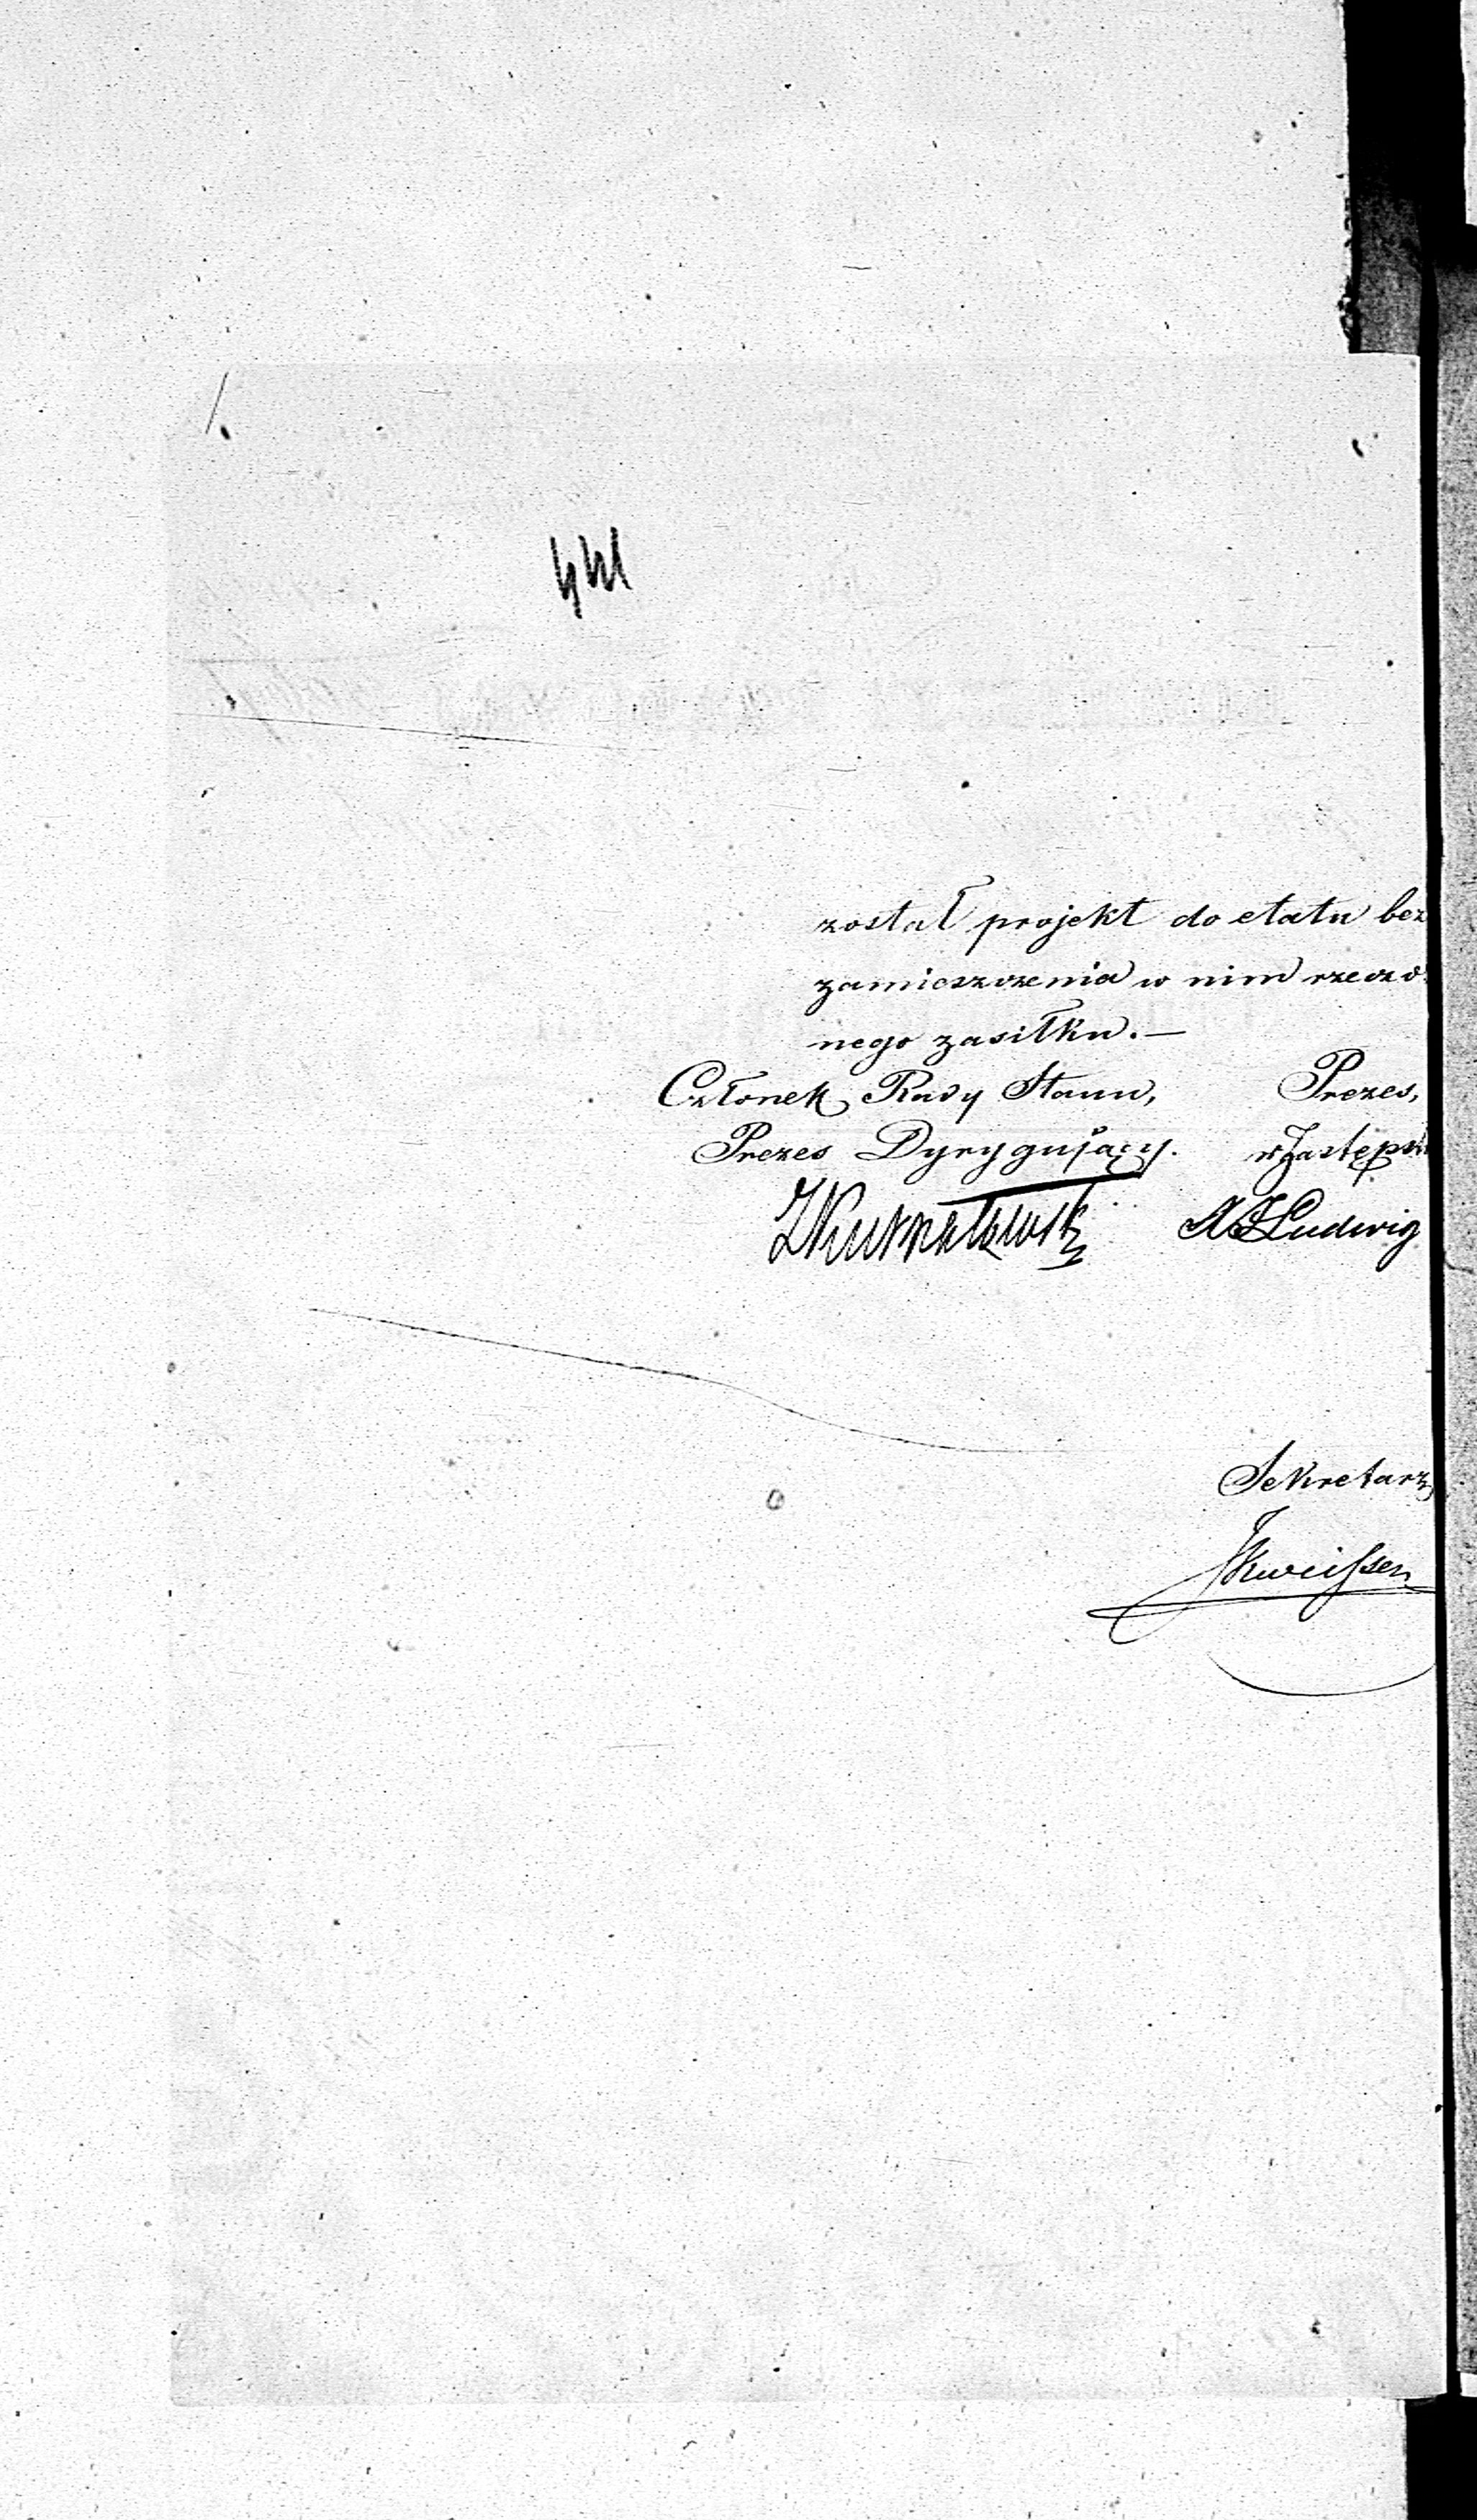 został projekt do etatu bez
zamieszczenia w nim rzeczo
nego zasiłku.—
Członek Rady Stanu, Prezes,
Prezes Dyrygujący. w Zastępst
Ludwig
Sekretarz